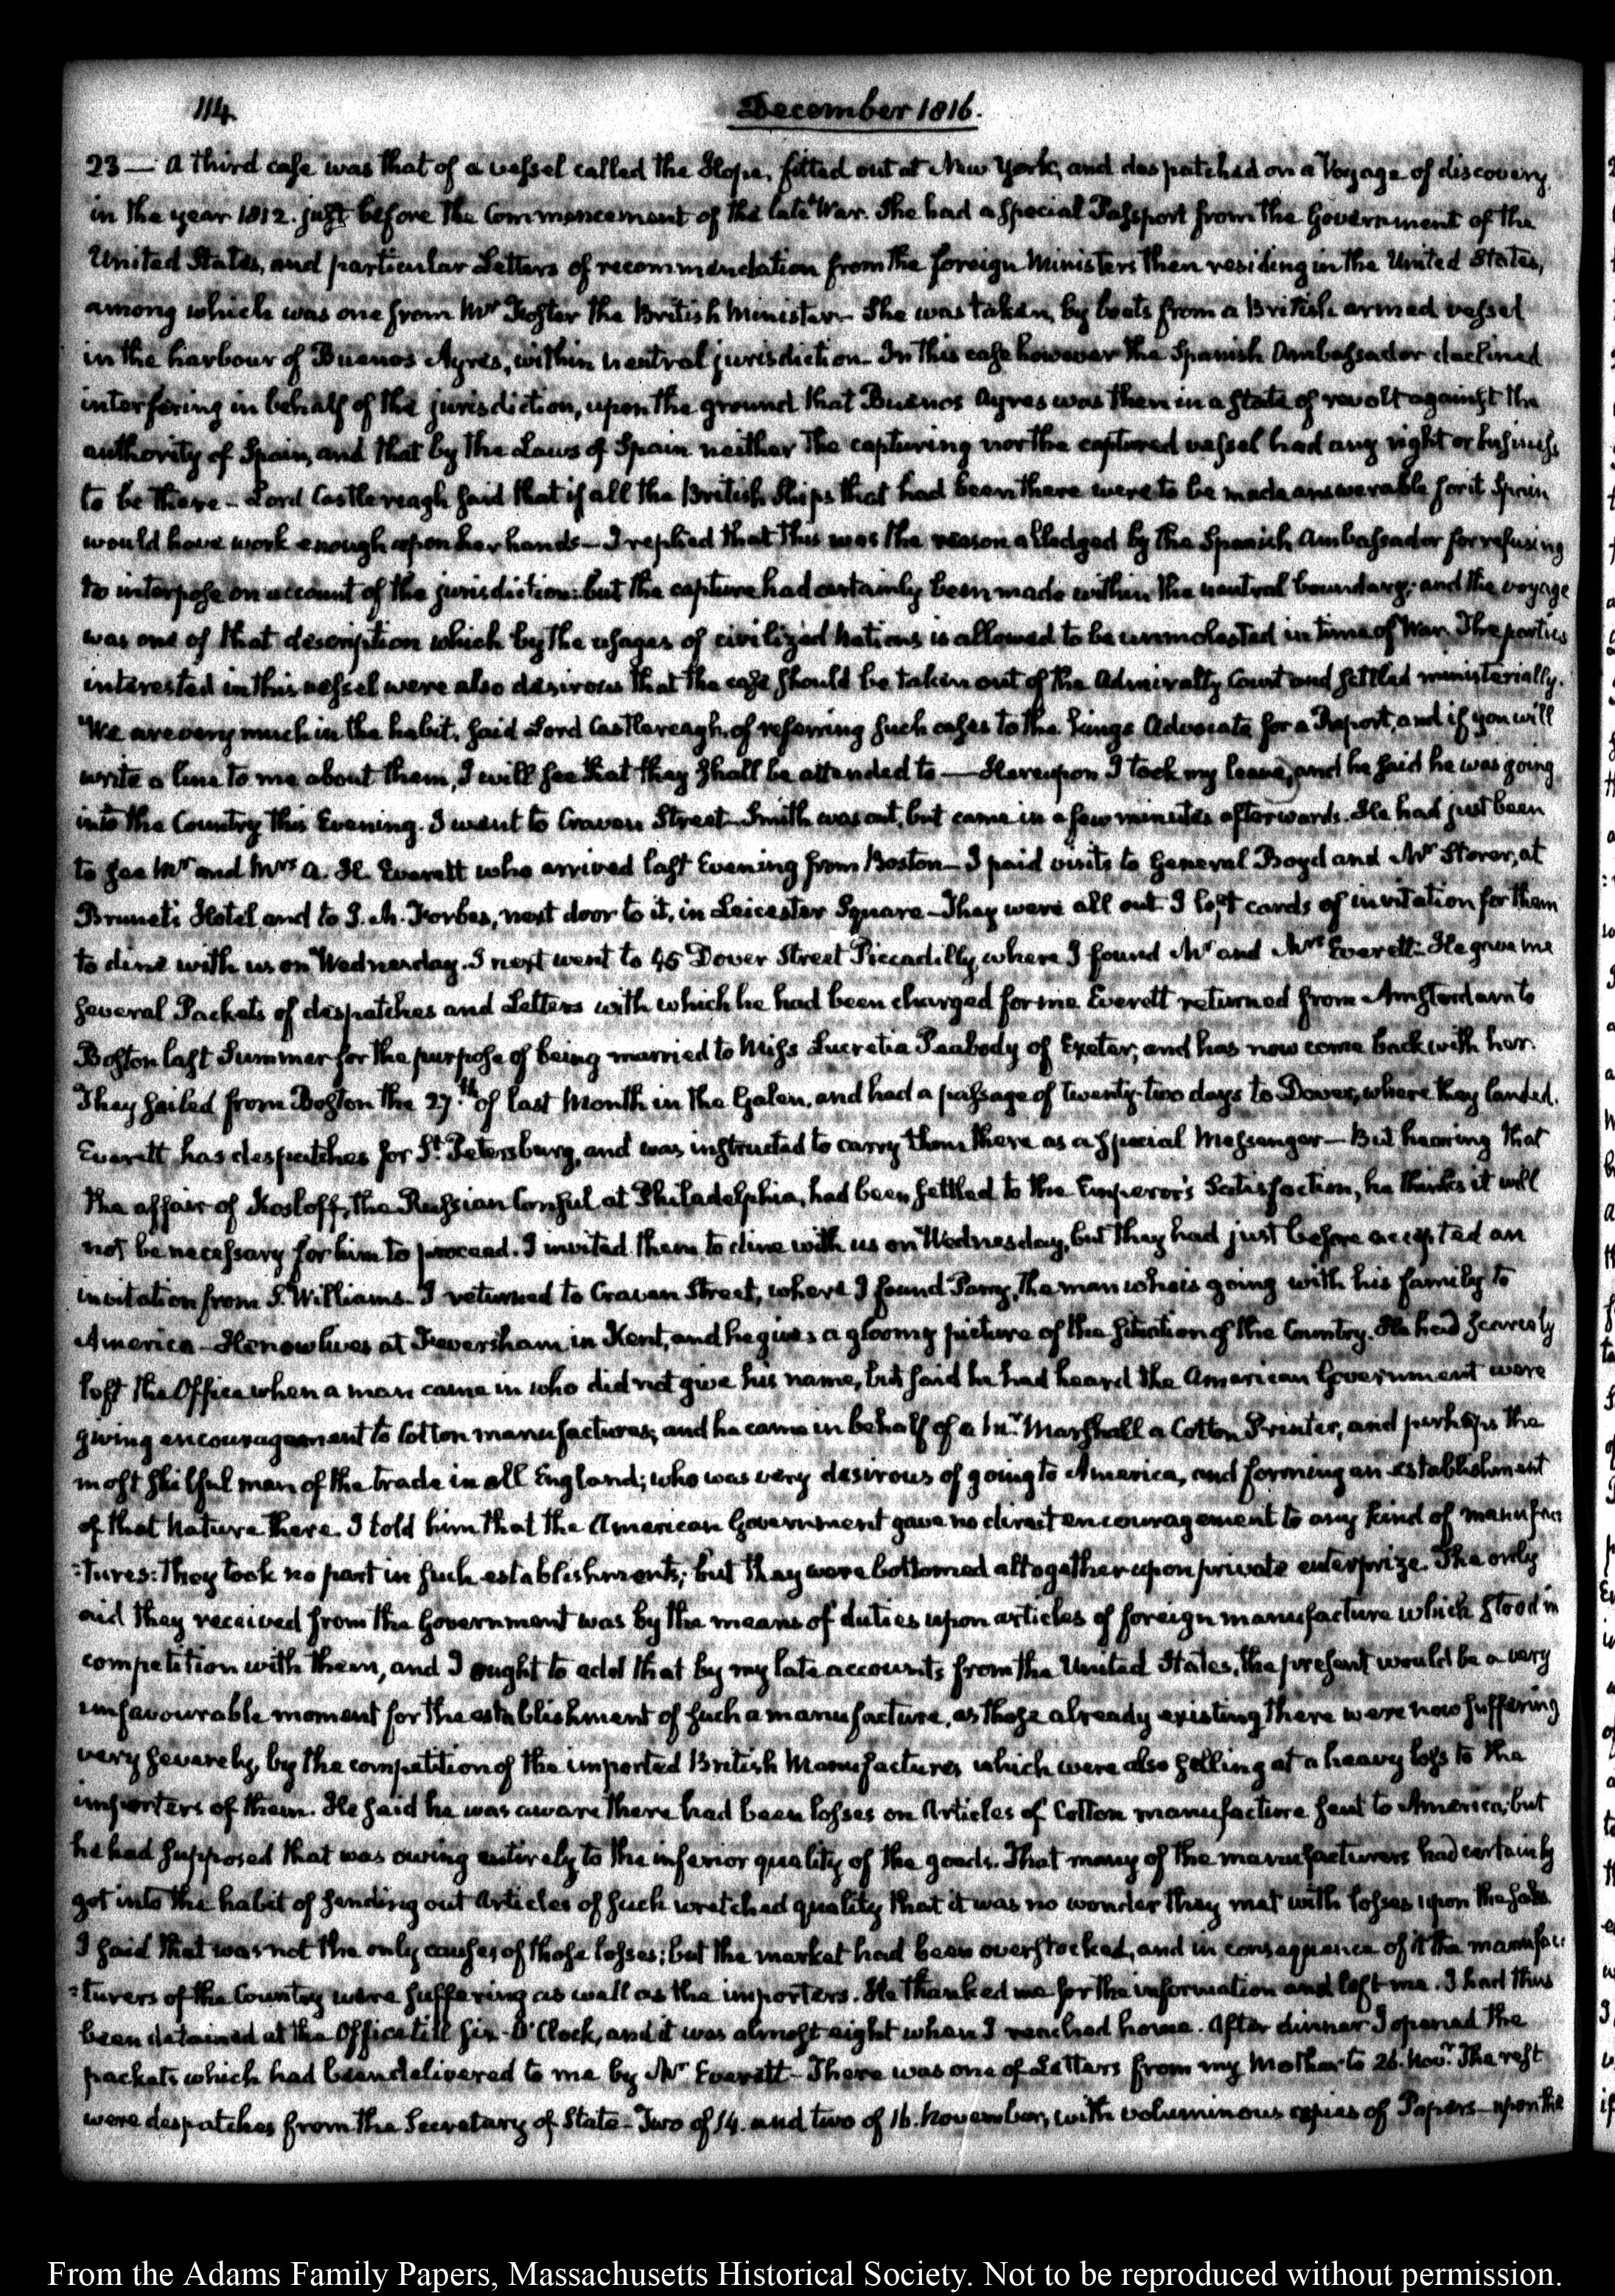 114
December 1816.
23 — A third case was that of a vessel called the Hope, fitted out at New York, and despatched on a Voyage of discovery
in the year 1812. just before the Commencement of the late War. She had a special Passport from the Government of the
United States, and particular Letters of recommendation from the foreign Ministers then residing in the United States,
among which was one from Mr. Foster the British Minister. She was taken, by boats from a British armed vessel
in the harbour of Buenos Ayres, within neutral jurisdiction — In this case however the Spanish Ambassador declined
interfering in behalf of the jurisdiction, upon the ground that Buenos Ayres was then in a state of revolt against the
authority of Spain, and that by the Laws of Spain neither the capturing nor the captured vessel had any right or business
to be there — Lord Castlereagh said that if all the British Ships that had been there were to be made answerable for it Spain
would have work enough upon her hands — I replied that this was the reason alledged by the Spanish Ambassador for refusing
to interpose on account of the jurisdiction: but the capture had certainly been made within the neutral boundary; and the voyage
was one of that description which by the usages of civilized Nations is allowed to be unmolested in time of War. The parties
interested in this vessel were also desirous that the case should be taken out of the Admiralty Court and settled ministerially.
"We are very much in the habit, said Lord Castlereagh, of referring such cases to the Kings Advocate for a Report, and if you will
write a line to me about them, I will see that they shall be attended to — Hereupon I took my leave, and he said he was going
into the Country this Evening. I went to Craven Street — Smith was out, but came in a few minutes afterwards. He had just been
to see Mr. and Mrs. A. H. Everett who arrived last Evening from Boston — I paid visits to General Boyd and Mr. Storer, at
Brunet's Hotel, and to J. M. Forbes, next door to it, in Leicester Square — They were all out. I left cards of invitation for them
to dine with us on Wednesday. I next went to 45 Dover Street Piccadilly, where I found Mr. and Mrs. Everett. He gave me
several Packets of despatches and Letters with which he had been charged for me. Everett returned from Amsterdam to
Boston last Summer for the purpose of being married to Miss Lucretia Peabody of Exeter, and has now come back with her.
They sailed from Boston the 27.th of last Month in the Galen, and had a passage of twenty-two days to Dover, where they landed.
Everett has despatches for St. Petersburg, and was instructed to carry them there as a special Messenger — But hearing that
the affair of Kosloff, the Russian Consul at Philadelphia, had been settled to the Emperor's Satisfaction, he thinks it will
not be necessary for him to proceed. I invited them to dine with us on Wednesday, but they had just before accepted an
invitation from S. Williams — I returned to Craven Street, where I found Parry, the man who is going with his family to
America — He now lives at Feversham in Kent, and he gives a gloomy picture of the situation of the Country. He had scarcely
left the Office when a man came in who did not give his name, but said he had heard the American Government were
giving encouragement to Cotton manufactures; and he came in behalf of a Mr. Marshall a Cotton Printer, and perhaps the
most skilful man of the trade in all England; who was very desirous of going to America, and forming an establishment
of that Nature there. I told him that the American Government gave no direct encouragement to any kind of manufac
:tures: they took no part in such establishments; but they were bottomed altogether upon private enterprize. The only
aid they received from the Government was by the means of duties upon articles of foreign manufacture which stood in
competition with them, and I ought to add that by my late accounts from the United States, the present would be a very
unfavourable moment for the establishment of such a manufacture, as those already existing there were now suffering
very severely, by the competition of the imported British Manufactures which were also selling at a heavy loss to the
importers of them. He said he was aware there had been losses on Articles of Cotton manufacture sent to America; but
he had supposed that was owing entirely to the inferior quality of the goods. That many of the manufacturers had certainly
got into the habit of sending out Articles of such wretched quality that it was no wonder they met with losses upon the sale.
I said that was not the only causes of those losses; but the market had been overstocked, and in consequence of it the manufac:
:turers of the Country were suffering as well as the importers. He thanked me for the information and left me. I had thus
been detained at the Office till six O'Clock, and it was almost eight when I reached home. After dinner I opened the
packets which had been delivered to me by Mr. Everett — There was one of Letters from my Mother to 26. Novr. The rest
were despatches from the Secretary of State — Two of 14. and two of 16. November, with voluminous copies of Papers — upon the
From the Adams Family Papers, Massachusetts Historical Society. Not to be reproduced without permission.